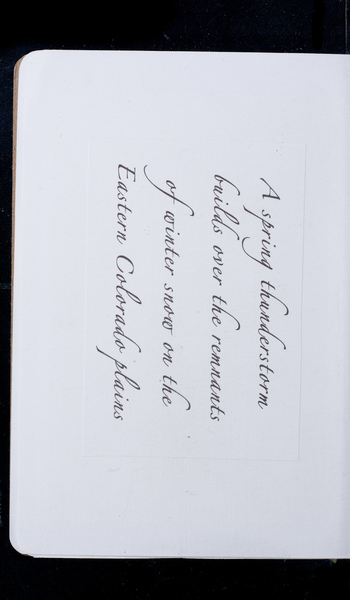 A spring thunderstorm
builds over the remnants
of winter snow on the
Eastern Colorado plains